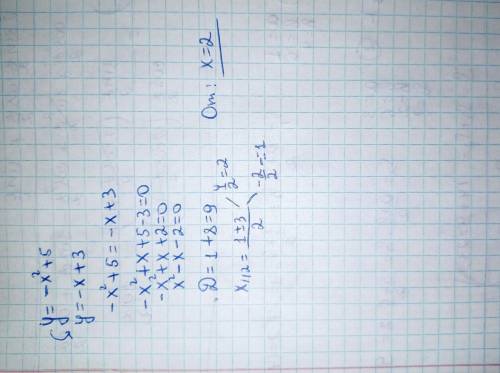 { y = -x² + 5
y = -x + 3
-x² + 5 = -x + 3
-x² + x + 5 - 3 = 0
-x² + x + 2 = 0
x² - x - 2 = 0
D = 1 + 8 = 9
x₁,₂ = (1 ± 3)/2 / 4/2 = 2
\ -2/2 = -1
От: x = 2